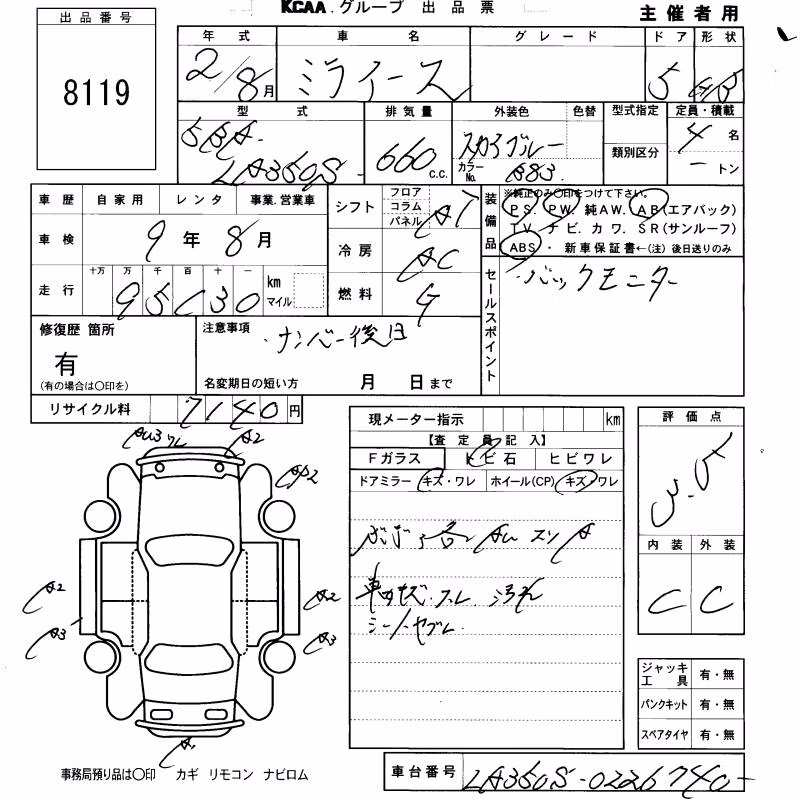 KCAA.グループ 出品票
主催者用
出品番号
8119
年式 車名 グレード ドア 形状
2/8月 ミライース 5 HB
型式 排気量 外装色 色替 型式指定 定員・積載
5BA- 660 c.c. スカイブルー 4名
LA350S カラーNo. B83 類別区分 トン
車歴 自家用 レンタ 事業.営業車
シフト フロア コラム パネル AT
車検 9年8月
冷房 AC
走行 十万 万 千 百 十 一 km マイル
燃料 G
装備品 ※純正のみ〇印をつけて下さい。
PS. PW. 純AW. AB(エアバック)
TV. ナビ. カワ. SR(サンルーフ)
ABS・ 新車保証書←(注) 後日送りのみ
セールスポイント
・バックモニター
修復歴 箇所 注意事項
有 ・ナンバー後日
(有の場合は〇印を) 名変期日の短い方 月 日まで
リサイクル料 7140円
現メーター指示 km
【査定員記入】
Fガラス トビ石 ヒビワレ
ドアミラー キズ・ワレ ホイール(CP) キズ・ワレ
評価点
3.5
内装 外装
C C
AU3 ワレ A2
A2
A2 A2
A3 A3
A
車内キズ・スレ 汚れ
シートヤブレ
ジャッキ工具 有・無
パンクキット 有・無
スペアタイヤ 有・無
事務局預り品は〇印 カギ リモコン ナビロム
車台番号 LA350S-0226740-